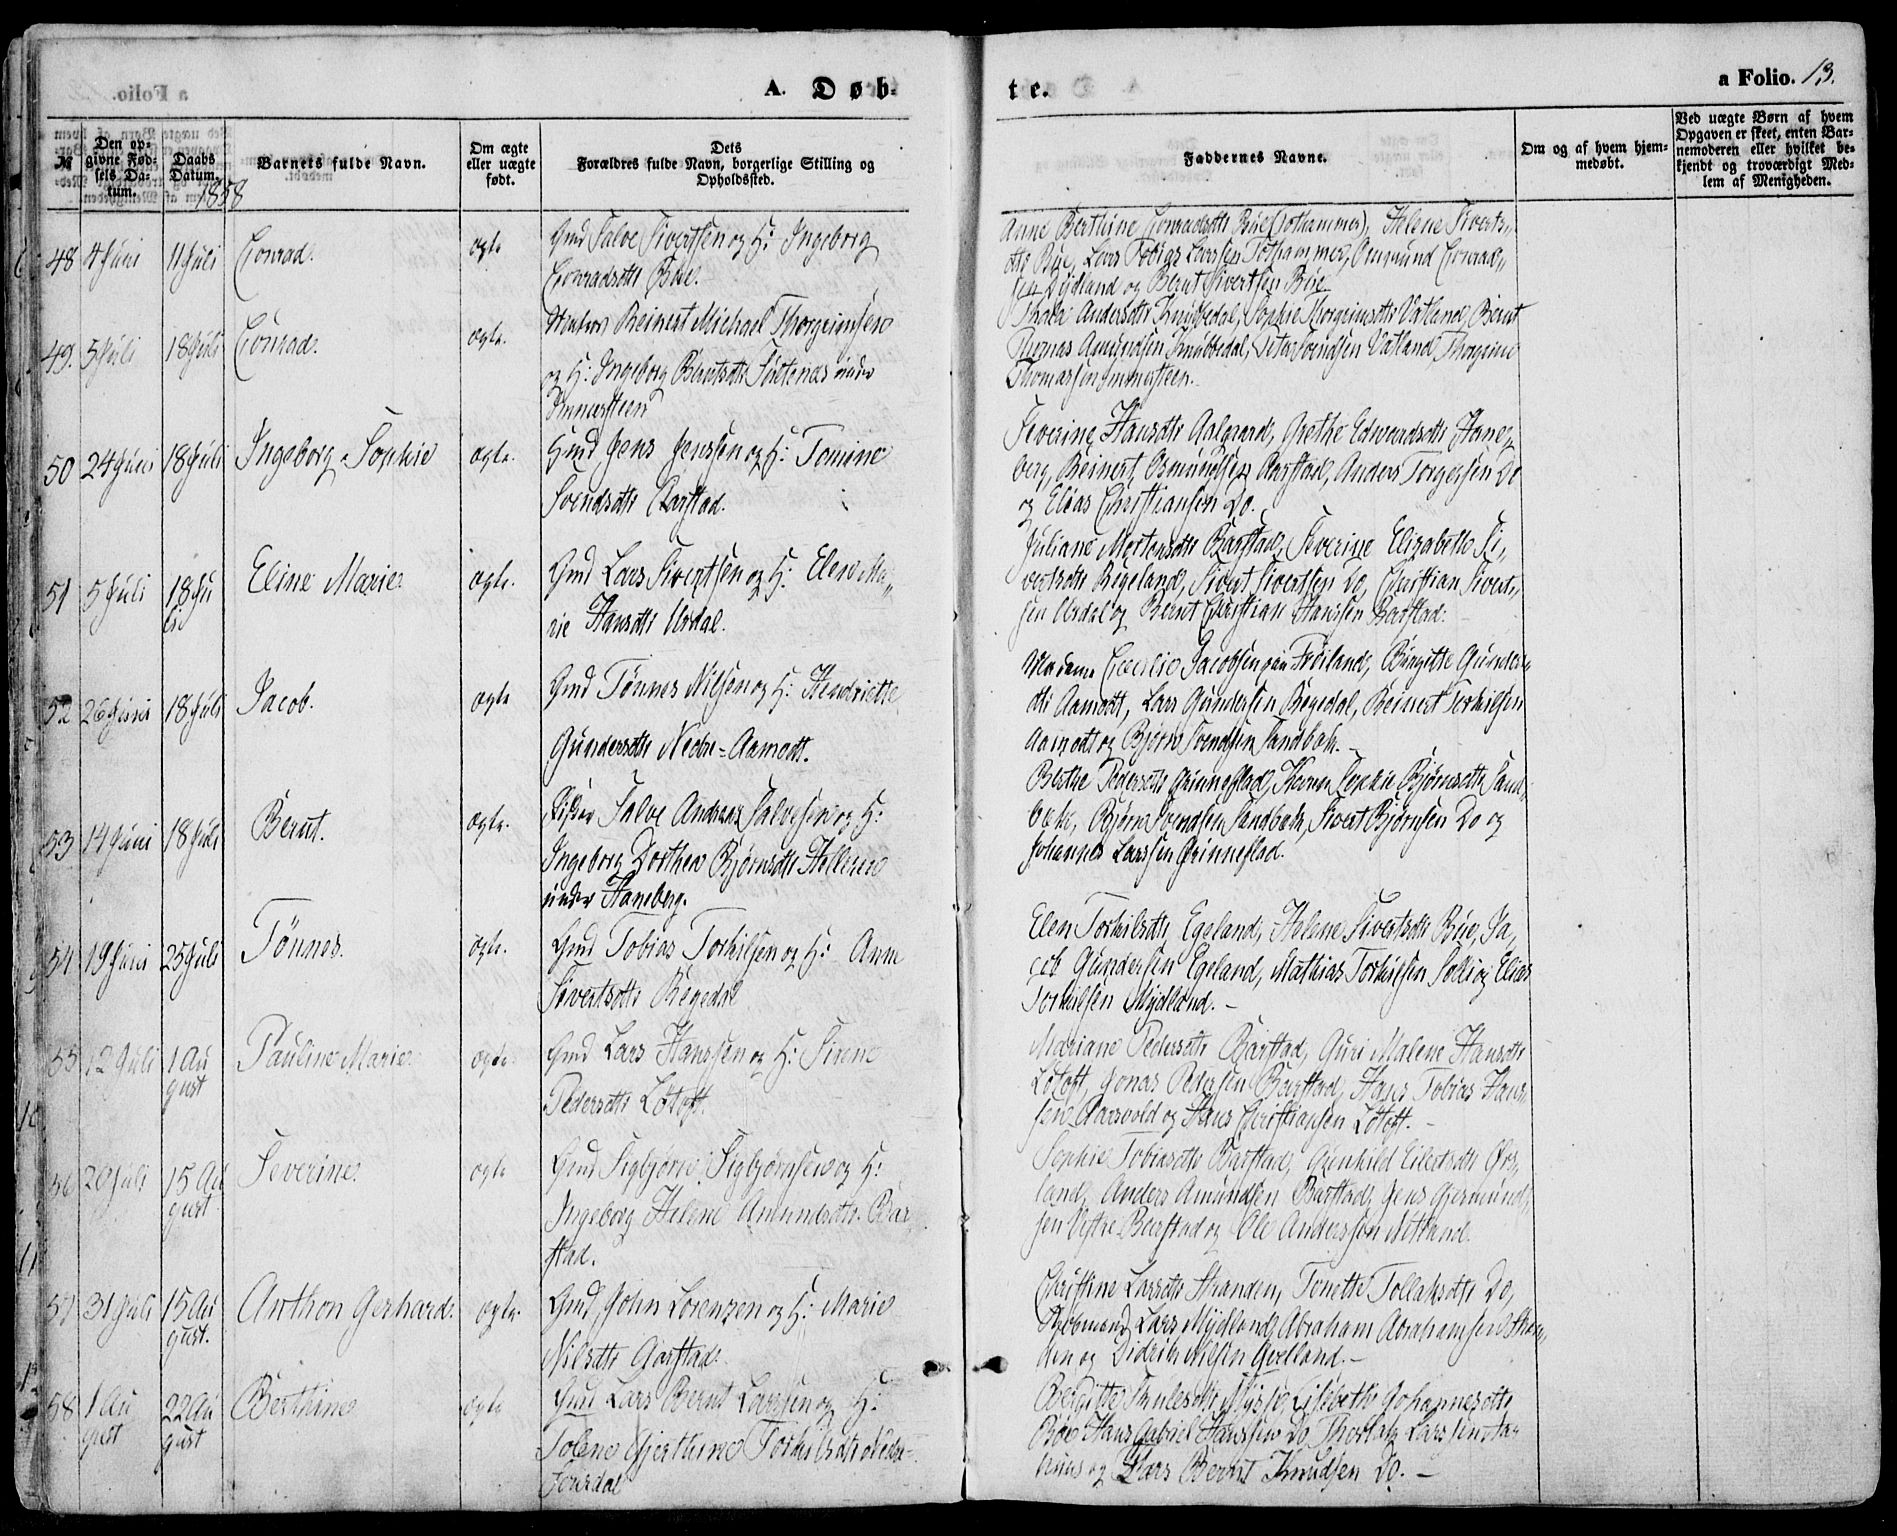 A. Døb-
te.
a Folio. 13.
№
Den op-
givne Fød-
sels Da-
tum.
Daabs
Datum.
1858
Barnets fulde Navn.
Om ægte
eller uægte
født.
Dets
Forældres fulde Navn, borgerlige Stilling og
Opholdssted.
Faddernes Navne.
Om og af hvem hjem-
medøbt.
Ved uægte Børn af hvem
Opgaven er skeet, enten Bar-
nemoderen eller hvilket be-
kjendt og troværdigt Med-
lem af Menigheden.
48 4 Juni 11 Juli Conrad. ægte Gmd Salve Sivertsen og H: Ingeborg
Conradsdtr Bøe.
Anne Berthine Conradsdtr Bøe (Tothammer), Helene Siverts-
dtr Bøe, Lars Tobias Larssen Tothammer, Omund Conrad-
sen Mydland og Bernt Sivertsen Bøe
49. 5 Juli 18 Juli Conrad. ægte. Reinert Michael Thorgrimsen
og H: Ingeborg Berntsdtr under
Immersteen
Andersdtr Knubbedal, Sophie Thorgrimsdtr Vatland, Bernt
Thomas Amundsen Knubbedal, Peter Svendsen Vatland, Thorgrim
Thomassen Immersteen.
50 24 Juni 18 Juli Ingeborg Sophie ægte. Gmd Jens Jenssen og H: Tomine
Svendsdtr Aarstad.
Severine Hansdtr Aalgaard, Grethe Edwardsdtr Hane-
berg, Reinert Osmundsen Aarstad, Anders Torgersen Do
og Elias Christiansen Do.
51 5 Juli 18 Ju
li Eline Marie ægte. Gmd Lars Sivertsen og H: Elen Ma-
rie Hansdtr Urdal.
Juliane Mortensdtr Barstad, Severine Elisabeth Si-
vertsdtr Regeland, Sivert Sivertsen Do, Christian Sivert-
sen Urdal og Bernt Christian Hanssen Barstad.
52 26 Juni 18 Juli Jacob. ægte Gmd Tønnes Nilsen og H: Hendriette
Gundersdtr Nedre-Aamodt.
Madame Cecilie Jacobsen paa Frøiland, Birgitte Gunders-
dtr Aamodt, Lars Gundersen Regedal, Reinert Torkilsen
Aamodt og Bjørn Svendsen Sandbek.
53 14 Juni 18 Juli Bernt. ægte. Salve Andreas Salvesen og H:
Ingeborg Dorthea Bjørnsdtr
under Haneberg.
Berthe Pedersdtr Grinnestad, Karen Sophie Bjørnsdtr Sand-
bek, Bjørn Svendsen Sandbek, Sivert Bjørnsen Do og
Johannes Larssen Grinnestad.
54 19 Juni 25 Juli Tønnes. ægte. Gmd Tobias Torkilsen og H: Anne
Sivertsdtr Regedal
Elen Torkilsdtr Egeland, Helene Sivertsdtr Bøe, Ja-
cob Gundersen Egeland, Mathias Torkilsen Solli og Elias
Torkilsen Mydland.
55 12 Juli 1 Au
gust Pauline Marie ægte. Gmd Lars Hanssen og H: Sirene
Pedersdtr Løtoft.
Mariane Pedersdtr Barstad, Guri Malene Hansdtr
Løtoft, Jonas Pedersen Barstad, Hans Tobias Hans-
sen Aarsvold og Hans Christiansen Løtoft.
56 20 Juli 15 Au
gust Severine ægte Gmd Sigbjørn Sigbjørnsen og H:
Ingeborg Helene Amundsdtr Bar-
stad.
Sophie Tobiasdtr Barstad, Gunhild Eilertsdtr Ørs-
land, Anders Amundsen Barstad, Jens Gjermund-
sen Vestre Barstad og Ole Anderssen Netland.
57 31 Juli 15 Au
gust. Anthon Gerhard. ægte. Gmd John Lorenzen og H: Marie
Nilsdtr Aarstad.
Christine Larsdtr Stranden, Tonette Tollaksdtr Do,
Lars Mydland, Abraham Abrahamsen Stran-
den og Didrik Nilsen Qvelland.
58 1 Au
gust 22 Au
gust Berthine ægte Gmd Lars Bernt Larssen og H:
Tolene Gjerthine Torkilsdtr Nedre-
Berditte Lisebeth Johannesdtr
Bøe Hans Gabriel Hanssen Do Thorlak Larssen
og Lars Bernt Knudsen Do.